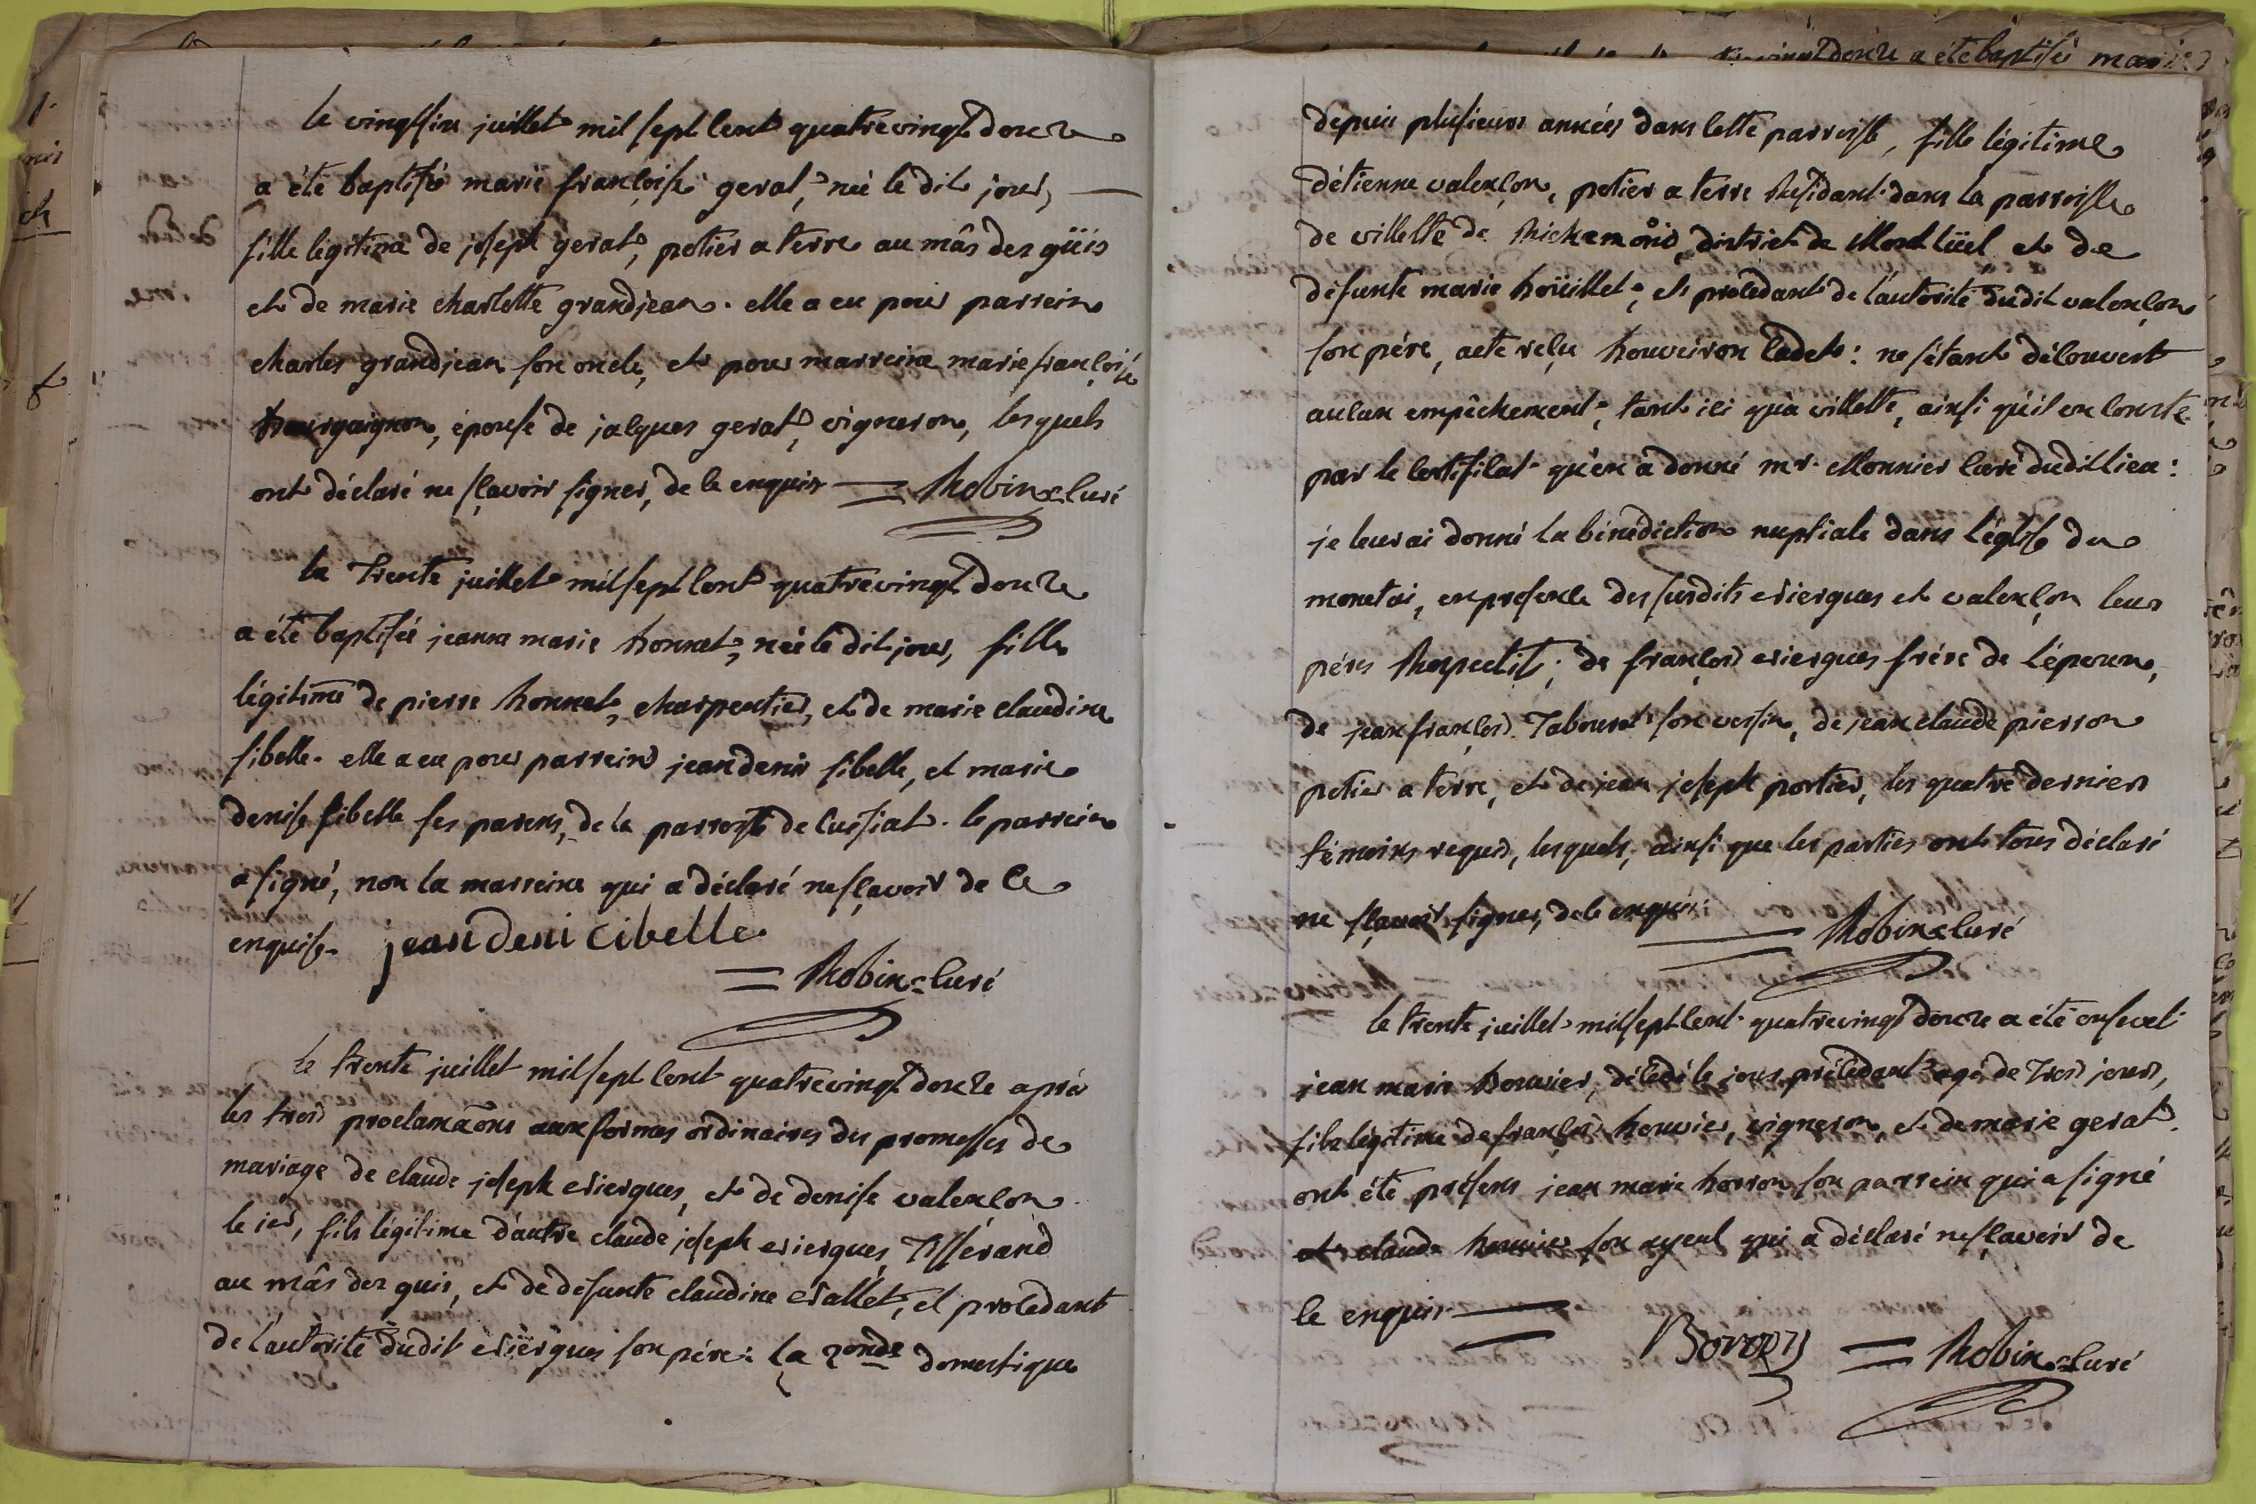 le vingt six juillet mil sept cent quatre vingt douze
a été baptisée marie françoise gerat, née le dit jour,
fille legitime de joseph gerat, potier a terre au mâs des güis
et de marie charlotte grandjean. elle a eu pour parrein
charles grandjean son oncle, et pour marreine marie françoise
bourguignon, épouse de jacques gerat, vigneron, lesquels
ont déclaré ne sçavoir signer, de ce enquis = Robin curé
le trente juillet mil sept cent quatre vingt douze
a été baptisée jeanne marie honnet, née le dit jour, fille
légitime de pierre honnet, charpentier, et de marie claudine
sibelle. elle a eu pour parrein jean denis sibelle, et marie
denise sibelle ses parens, de la parroisse de cuisiat. le parrein
a signé, non la marreine qui a déclaré ne sçavoir de ce
enquise. jean deni cibelle
= Robin curé
le trente juillet mil sept cent quatre vingt douze après
les trois proclamãons aux formes ordinaires des promesses de
mariage de claude joseph eriergues, et de denise valençon
le 1er, fils légitime d'autre claude joseph eriergues, Tisserand
au mâs des guis, et de defunte claudine et procedant
de l'autorité dudit eriergues son pére: la 2onde domestique
depuis plusieurs années dans cette parroisse, fille légitime
d'étienne valençon, potier a terre résidant dans la parroisse
de villette de Richemond, district de Montlüel et de
défunte marie hoüillet, et procedant de l'autorité dudit valençon
son pére, acte reçu cadet: ne s'étant découvert
aucun empêchement, tant ici qu'a villette, ainsi qu'il en conste
par le certificat qu'en a donné mr. Monnier curé dudit lieu:
je leur ai donné la bénédiction nuptiale dans l'église du
monetai, en presence des susdits eriergues et valençon leur
péres Respectifs; de françois eriergues frére de l'époux,
de jean françois Tabouret son voisin, de jean claude pierron
potier a terre, et de jean joseph portier, les quatre derniers
témoins requis, lesquels, ainsi que les parties ont tous déclaré
ne sçavoir signer, de ce enquis = Robin curé
le trente juillet mil sept cent quatre vingt douze a été enseveli
jean marie décedé le jour précédant agé de trois jours,
fils légitime de françois vigneron, et de marie gerat.
ont été présens jean marie son parrein qui a signé
et claude son ayeul qui a déclaré ne sçavoir de
ce enquis
= Robin curé